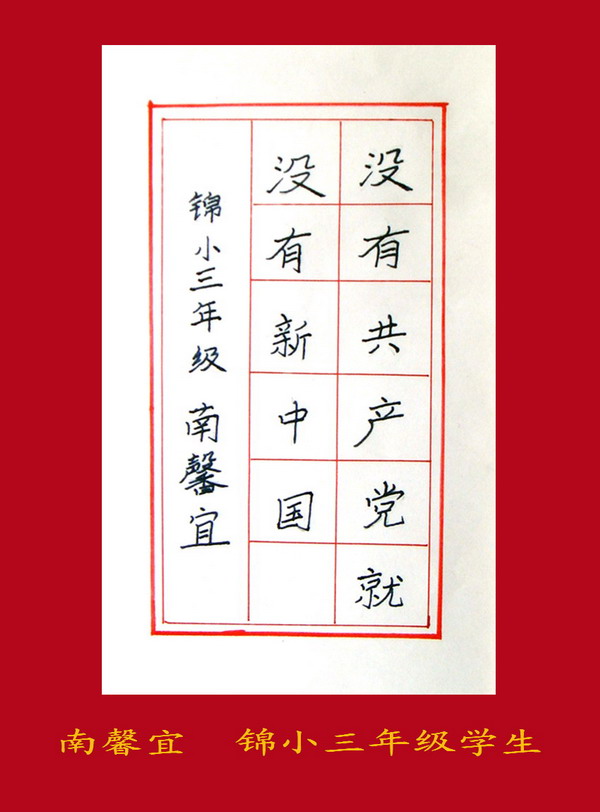 没有共产党就
没有新中国
锦小三年级 南馨宜
南馨宜 锦小三年级学生